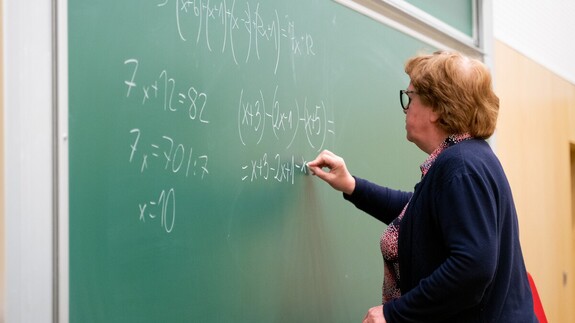 (x+6)+(x+1)+(x-2)+(3x+1)=7x+12
7x+12=82
7x=70 | :7
x=10
(x+3)-(2x-1)-(x+5)=
=x+3-2x+1-x